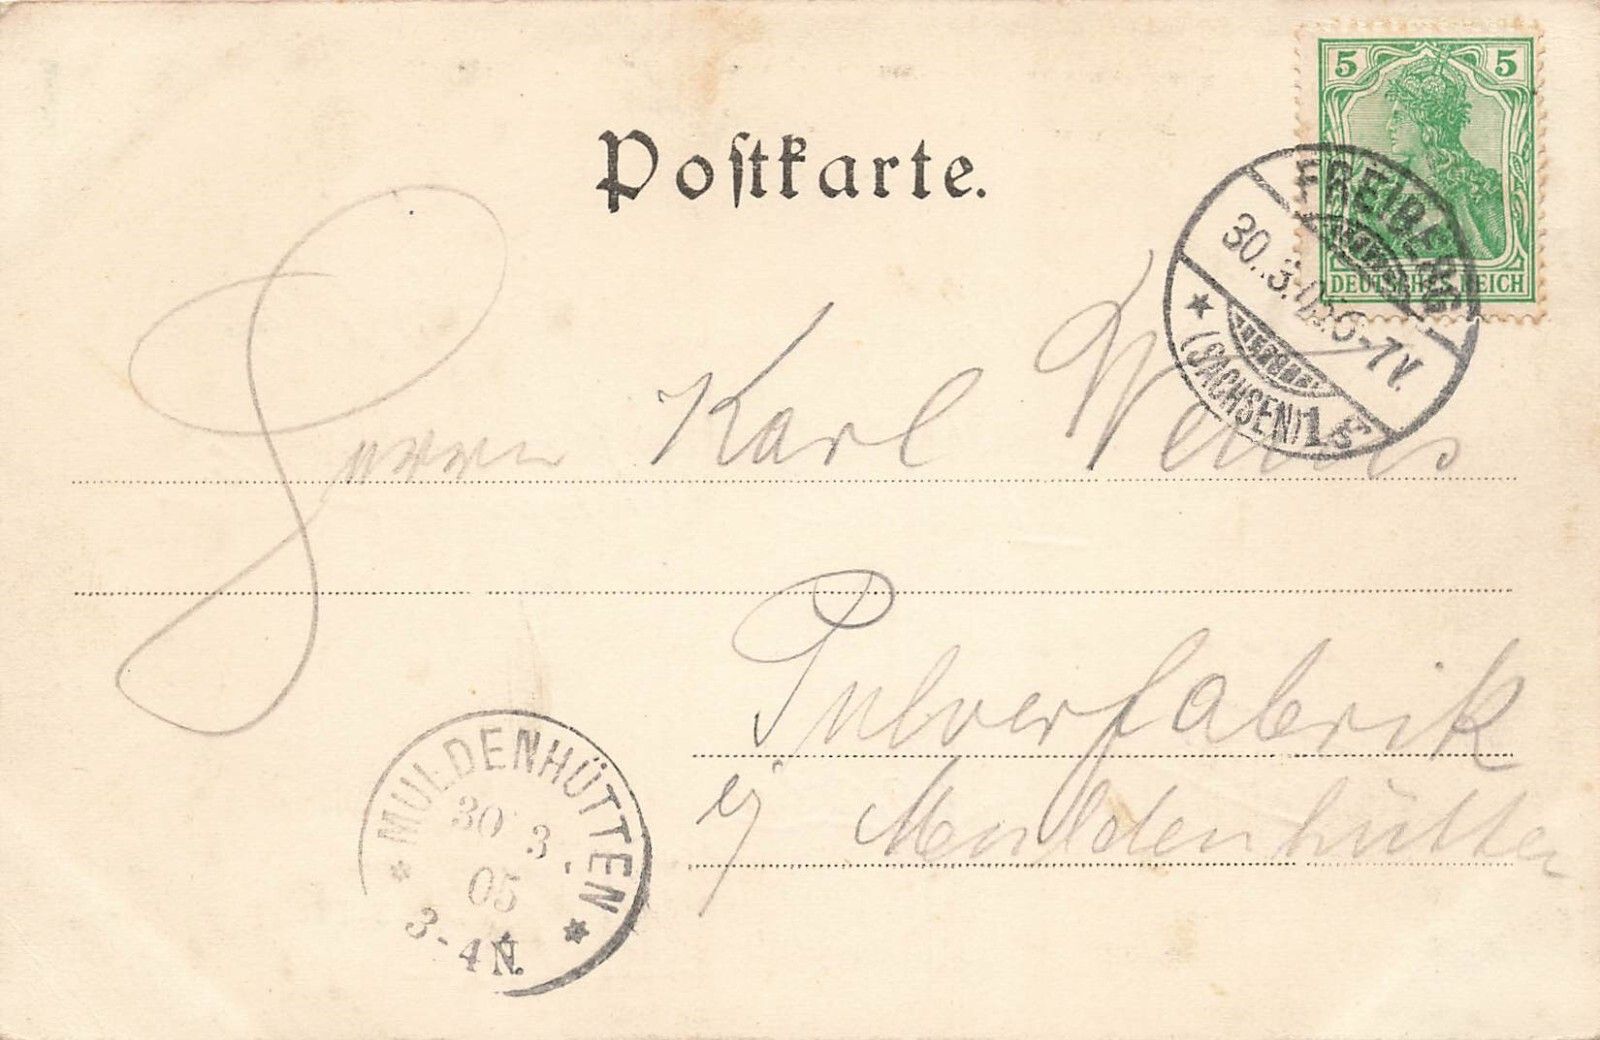 Postkarte.
5 5
DEUTSCHES REICH
FREIBERG
30.3.05 6-7V.
(SACHSEN) 1
Herrn Karl
Pulverfabrik
Muldenhütten
MULDENHÜTTEN
30 3
05
3-4N.